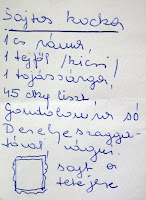 Sajtos kocka
1 cs ráma,
1 tejföl /kicsi/
1 tojássárga,
45 dkg liszt,
só
Derelyeszaggatóval vágni.
sajt a
tetejére